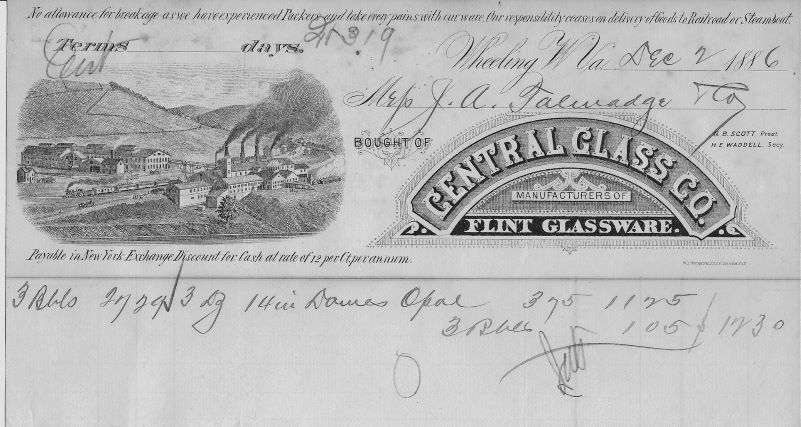 No allowance for breakage as we have experienced Packers and take every pains with our ware. Our responsibility ceases on delivery of Goods to Railroad or Steamboat.
Terms days.
Wheeling W. Va. Dec 2 1886
Mess J. A. Talmadge & Co
BOUGHT OF
CENTRAL GLASS CO.
N. B. SCOTT Prest.
H. E. WADDELL, Secy.
MANUFACTURERS OF
FLINT GLASSWARE.
Payable in New York Exchange Discount for Cash at rate of 12 per Ct. per annum.
3 Bbls 3 Dz 14 in Domes Opal 375 1125
3 Bbls 105 1230